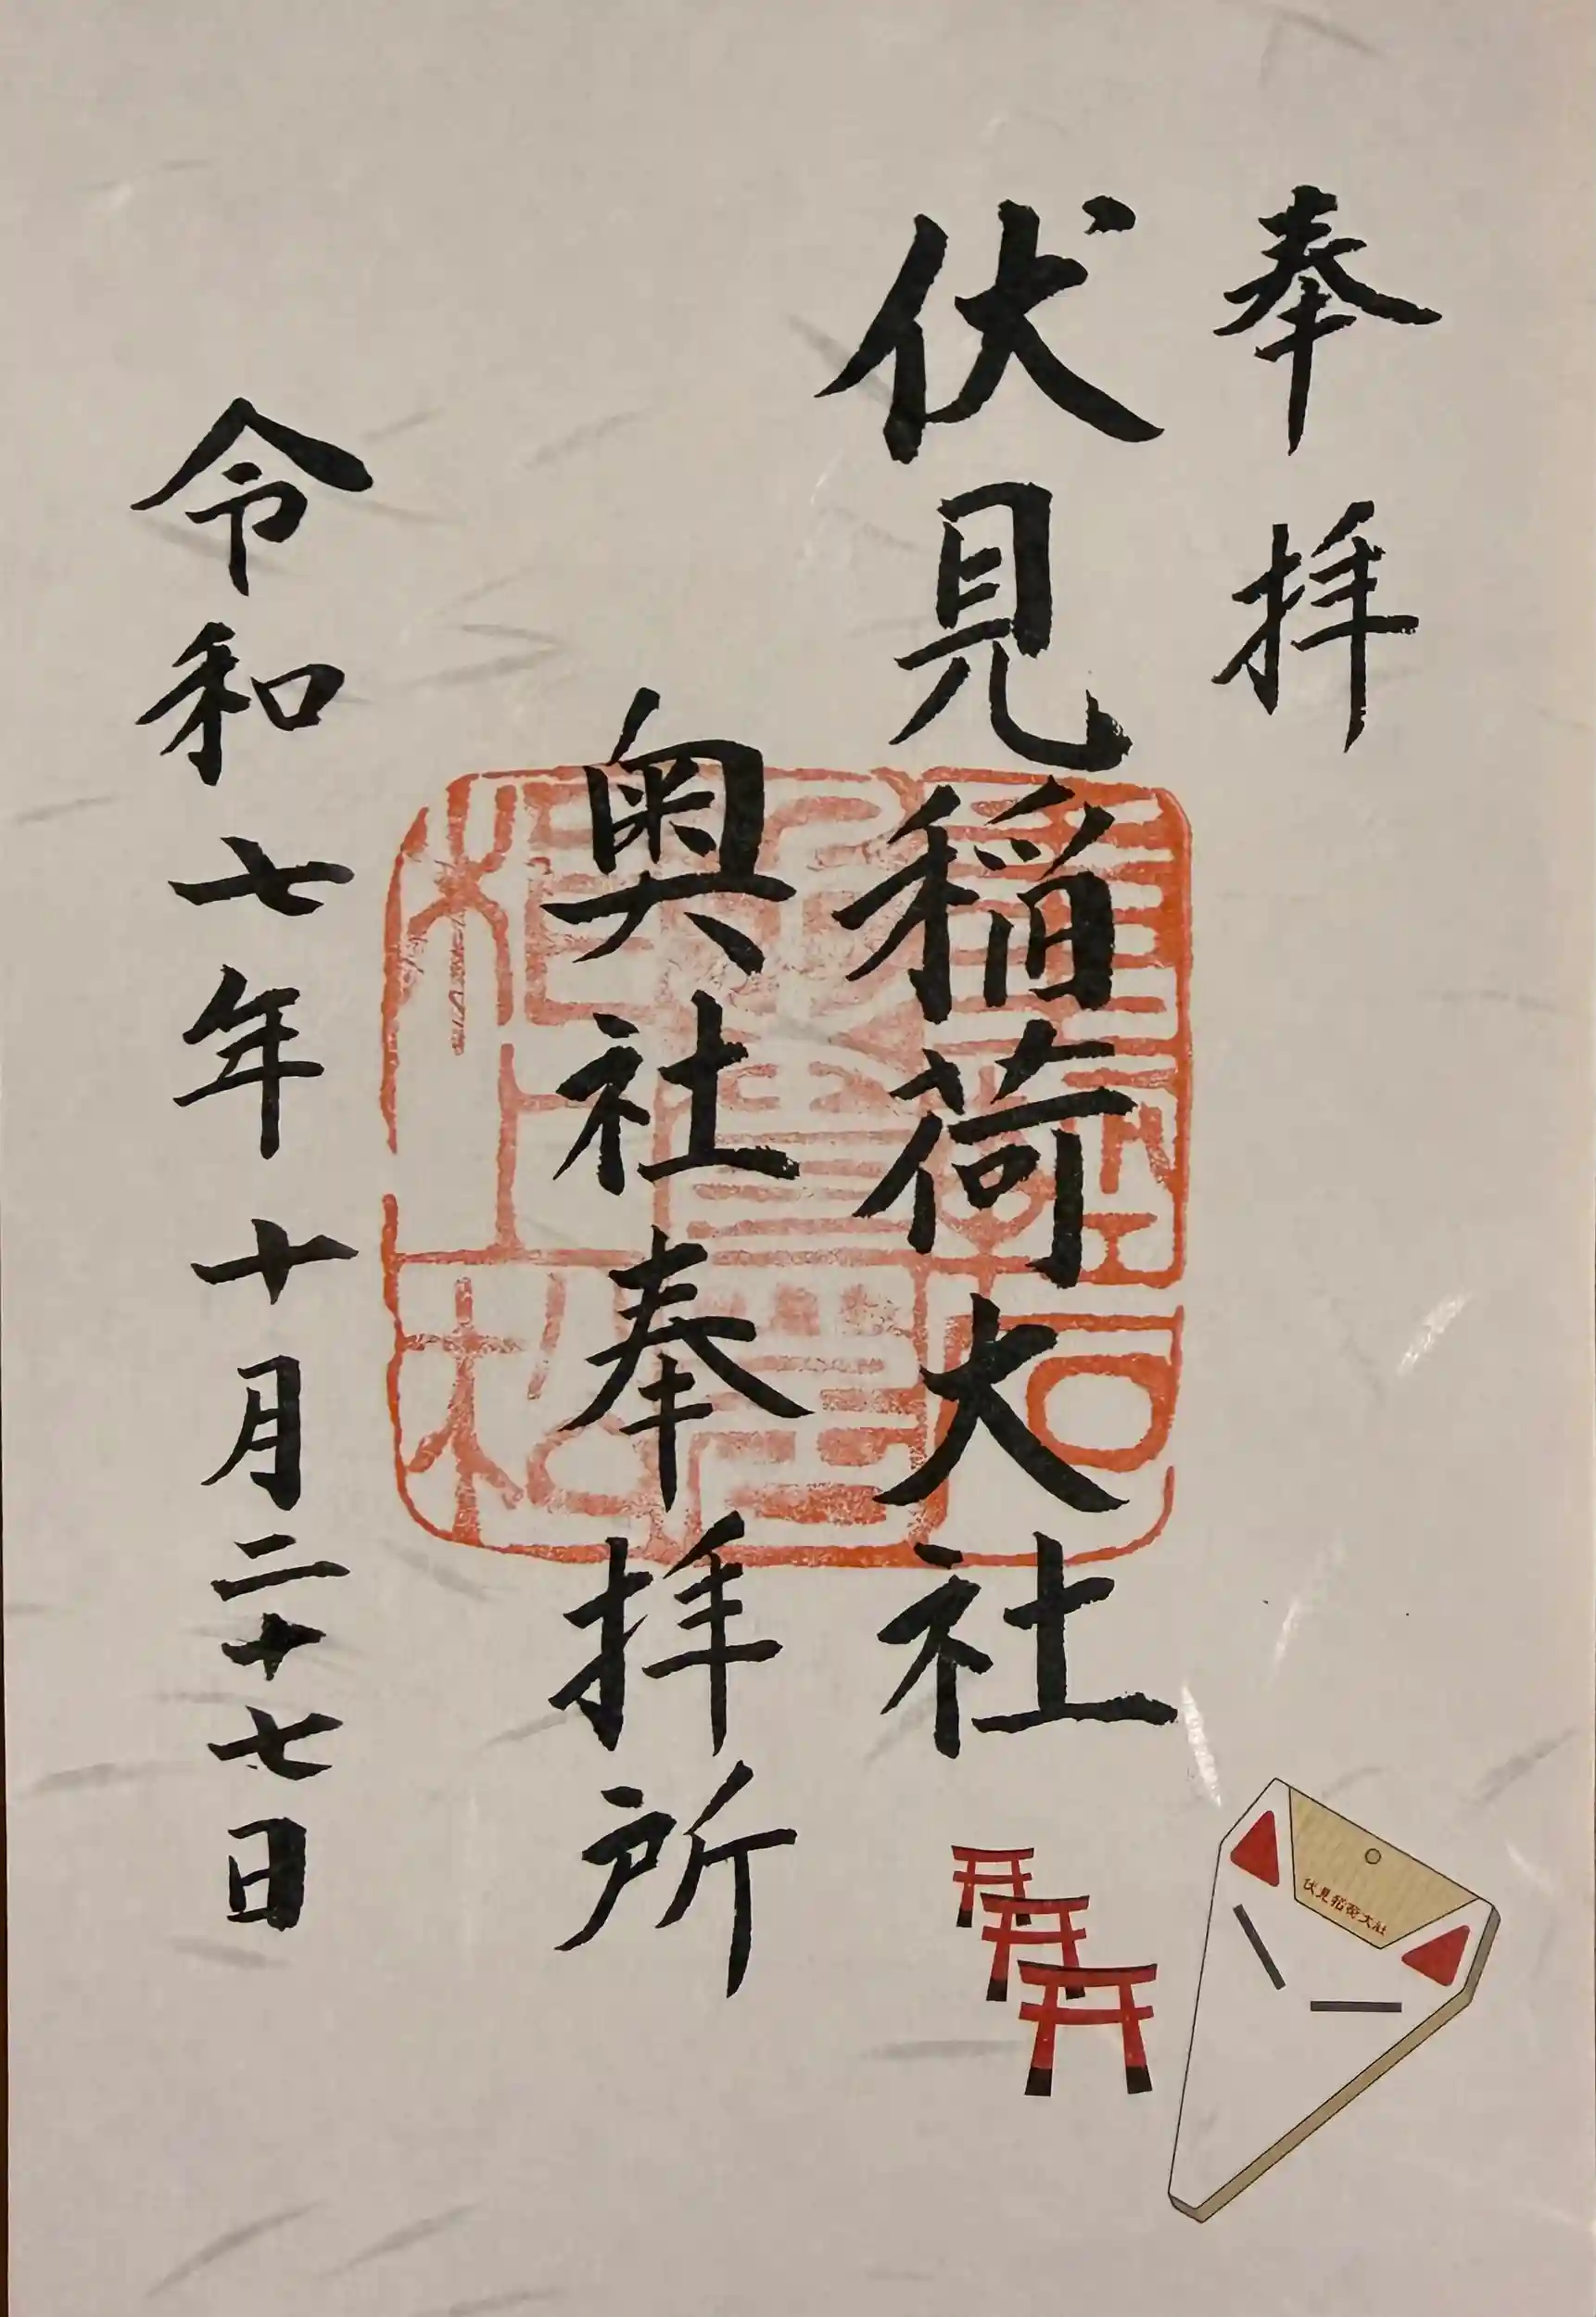 奉拝
伏見稲荷大社
奥社奉拝所
令和七年十月二十七日
伏見稲荷大社